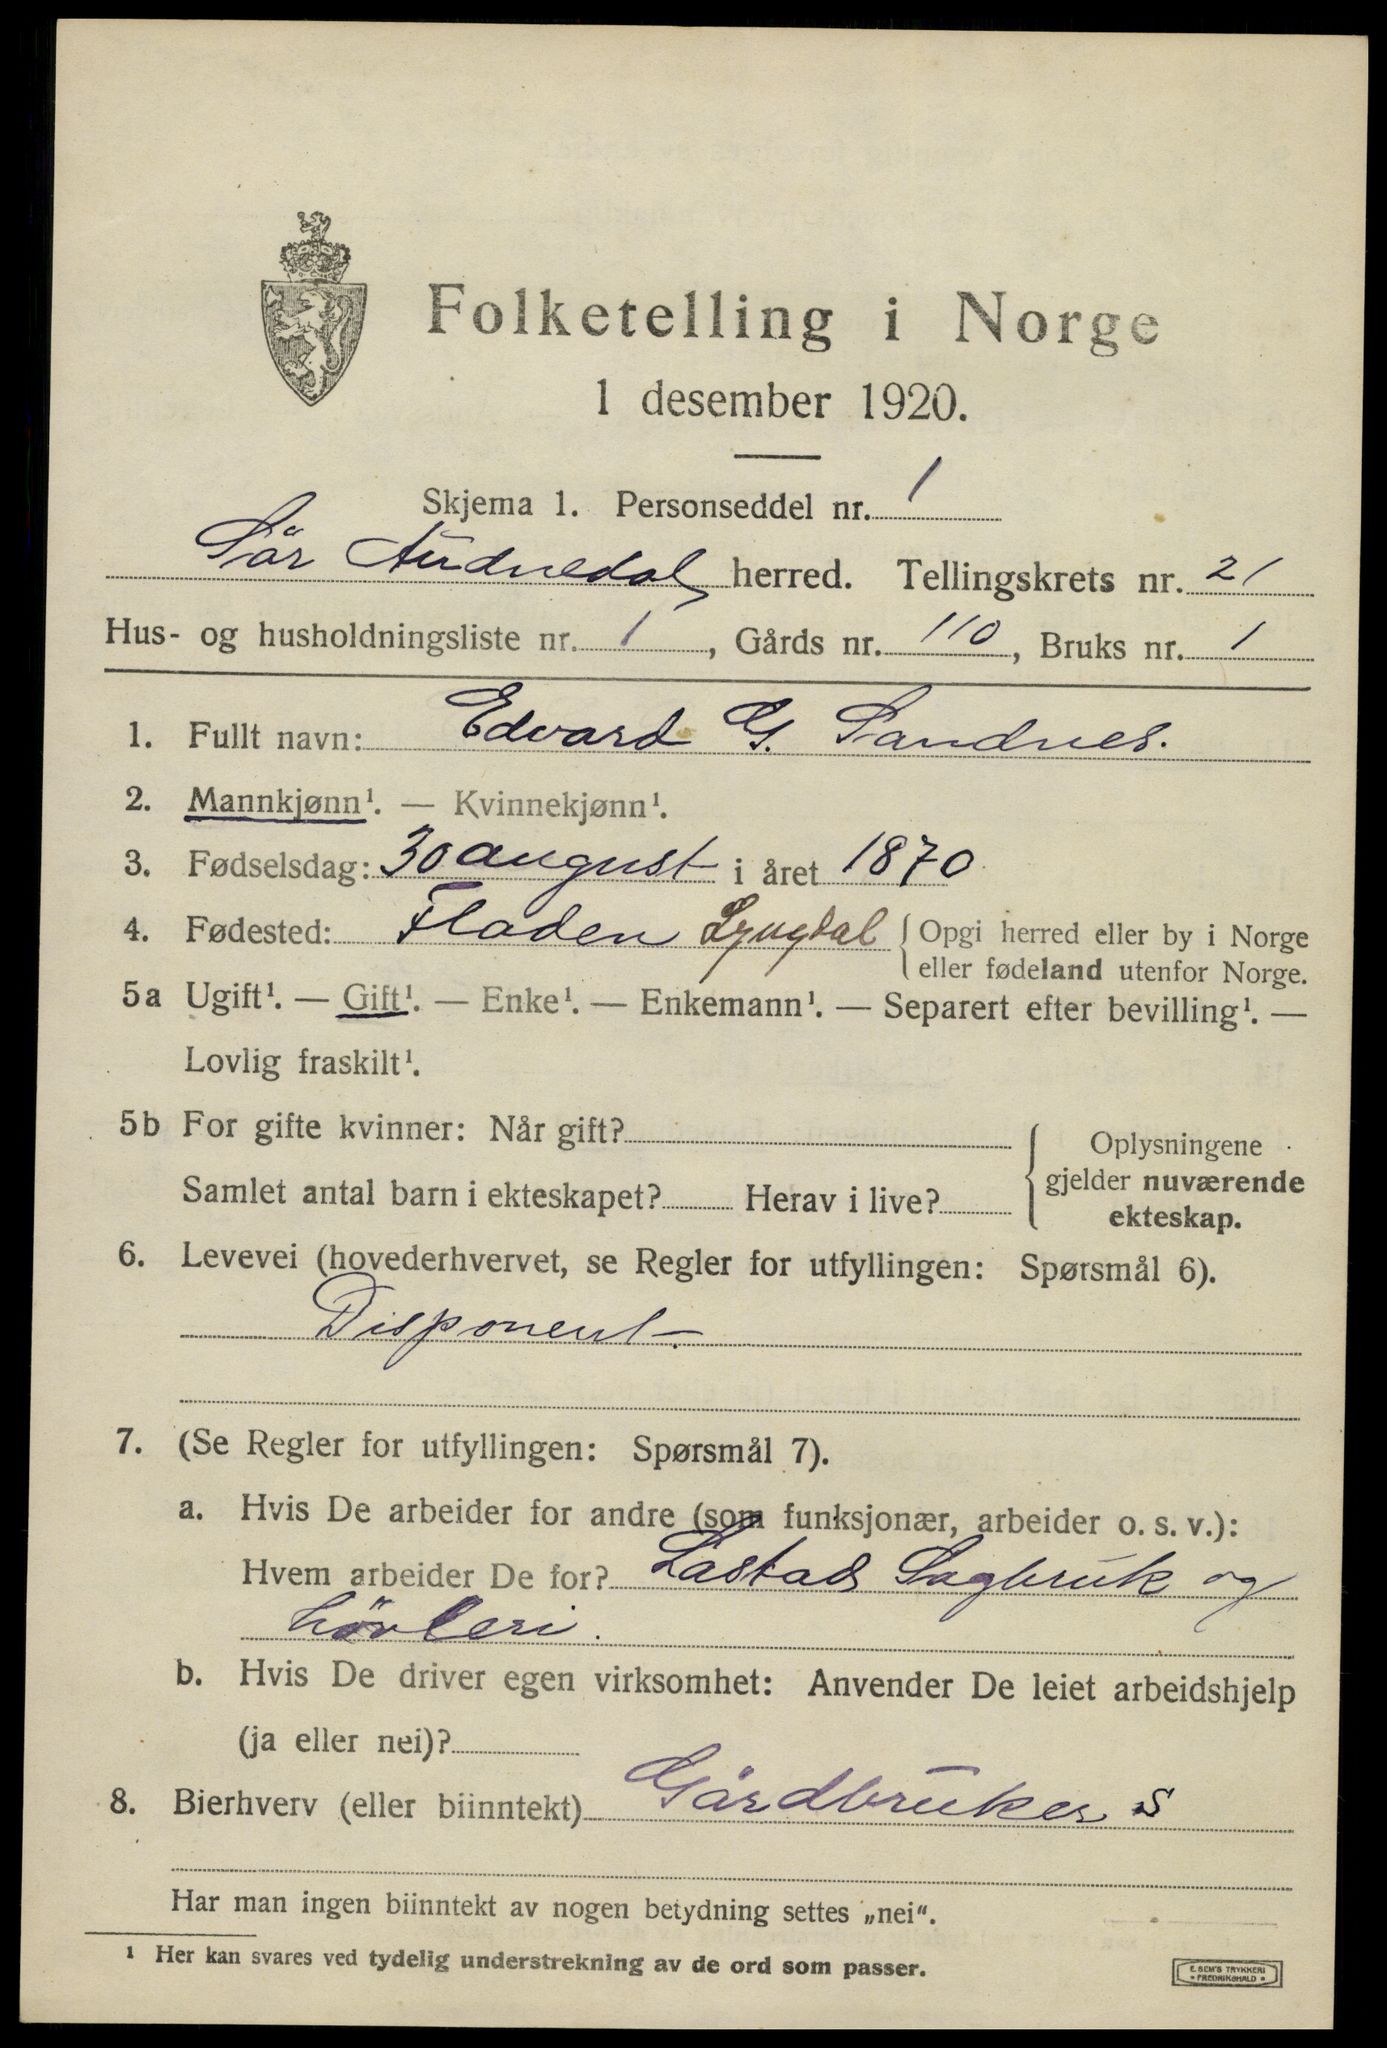 Folketelling i Norge
1 desember 1920.
Skjema 1. Personseddel nr. 1
Sör Audnedal herred. Tellingskrets nr. 21
Hus- og husholdningsliste nr. 1, Gårds nr. 110, Bruks nr. 1
1. Fullt navn: Edvard G. Sandnes.
2. Mannkjønn¹. — Kvinnekjønn¹.
3. Fødselsdag: 30 august i året 1870
4. Fødested: Fladen Lyngdal { Opgi herred eller by i Norge
eller fødeland utenfor Norge.
5a Ugift¹. — Gift¹. — Enke¹. — Enkemann¹. — Separert efter bevilling¹. —
Lovlig fraskilt¹.
5b For gifte kvinner: Når gift?
Samlet antal barn i ekteskapet? Herav i live?
Oplysningene
gjelder nuværende
ekteskap.
6. Levevei (hovederhvervet, se Regler for utfyllingen: Spørsmål 6).
Disponent
7. (Se Regler for utfyllingen: Spørsmål 7).
a. Hvis De arbeider for andre (som funksjonær, arbeider o. s. v.):
Hvem arbeider De for? Lastad Sagbruk og
hövleri.
b. Hvis De driver egen virksomhet: Anvender De leiet arbeidshjelp
(ja eller nei)?
8. Bierhverv (eller biinntekt) Gårdbruker S
Har man ingen biinntekt av nogen betydning settes „nei“.
¹ Her kan svares ved tydelig understrekning av de ord som passer.
E. SEM'S TRYKKERI
• FREDRIKSHALD •